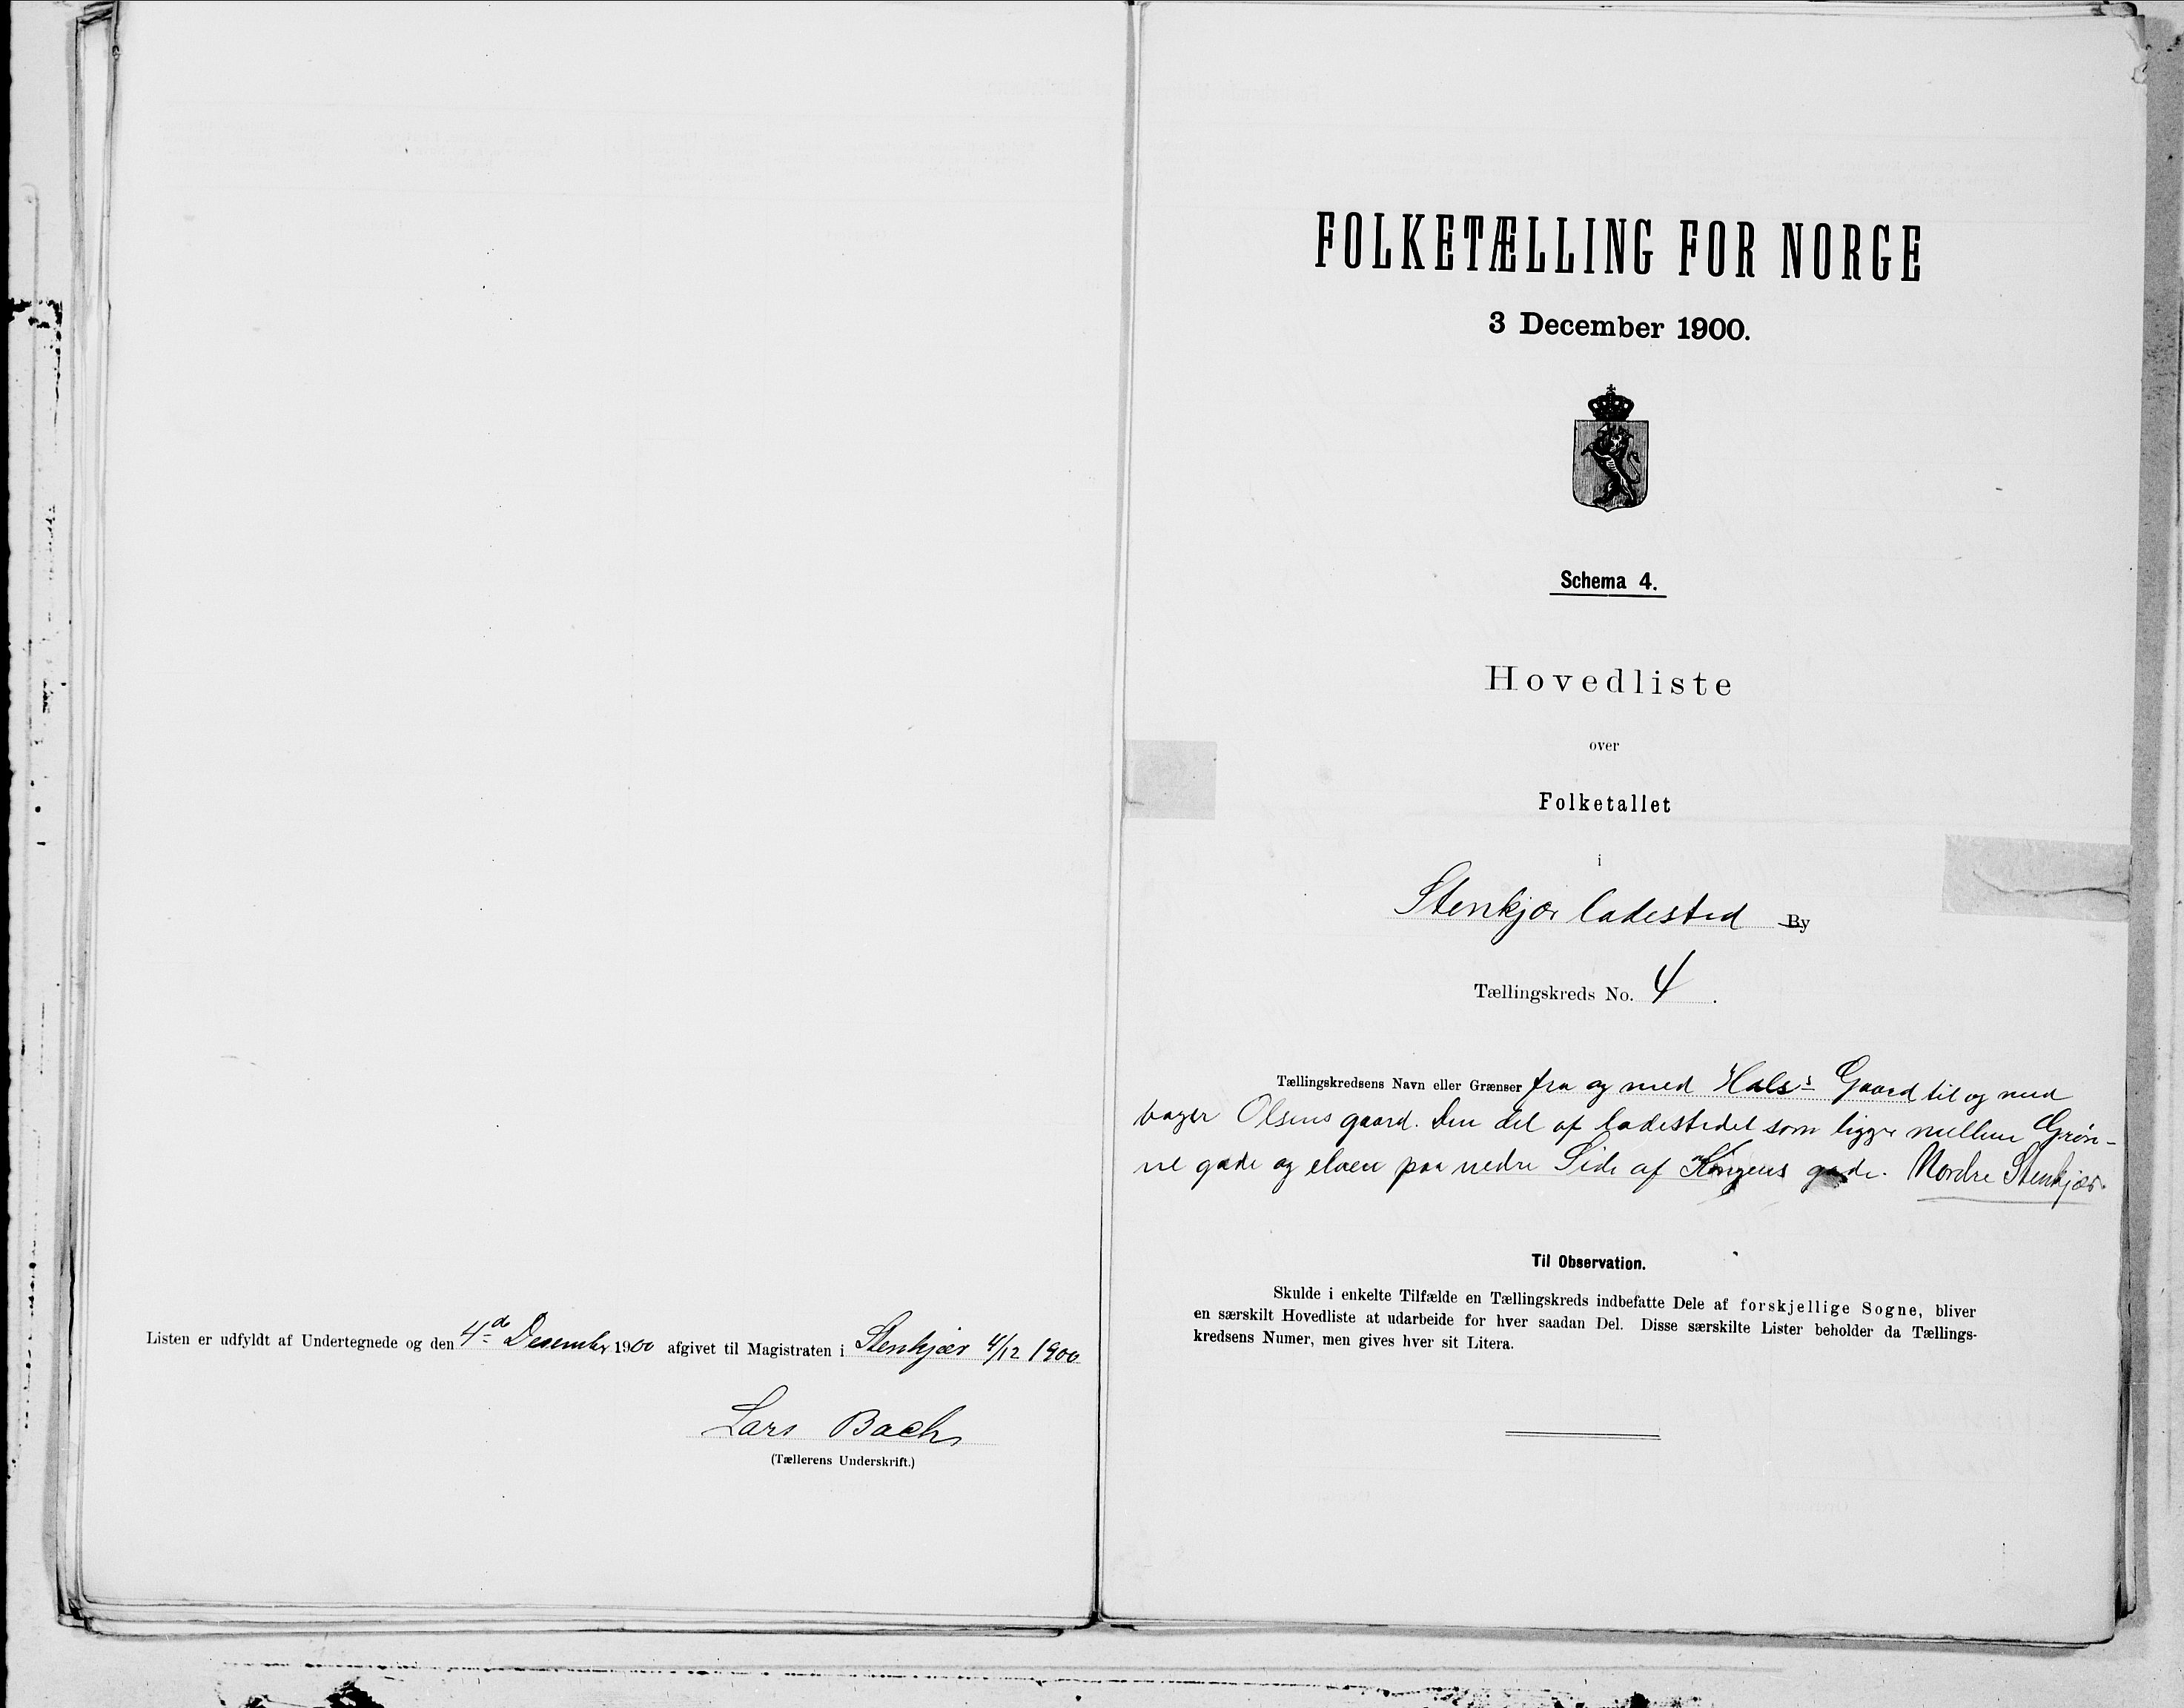 Listen er udfyldt af Undertegnede og den 4de December 1900 afgivet til Magistraten i Stenkjær 4/12 1900
Lars Bach
(Tællerens Underskrift.)
FOLKETÆLLING FOR NORGE
3 December 1900.
Schema 4.
Hovedliste
over
Folketallet
i
Stenkjær ladested By
Tællingskreds No. 4.
Tællingskredsens Navn eller Grænser fra og med Hals's Gaard til og med
bager Olsens gaard. Den del af ladestedet som ligger mellem Grøn-
ne gade og elven paa nedre Side af Kongens gade. Nordre Stenkjær.
Til Observation.
Skulde i enkelte Tilfælde en Tællingskreds indbefatte Dele af forskjellige Sogne, bliver
en særskilt Hovedliste at udarbeide for hver saadan Del. Disse særskilte Lister beholder da Tællings-
kredsens Numer, men gives hver sit Litera.